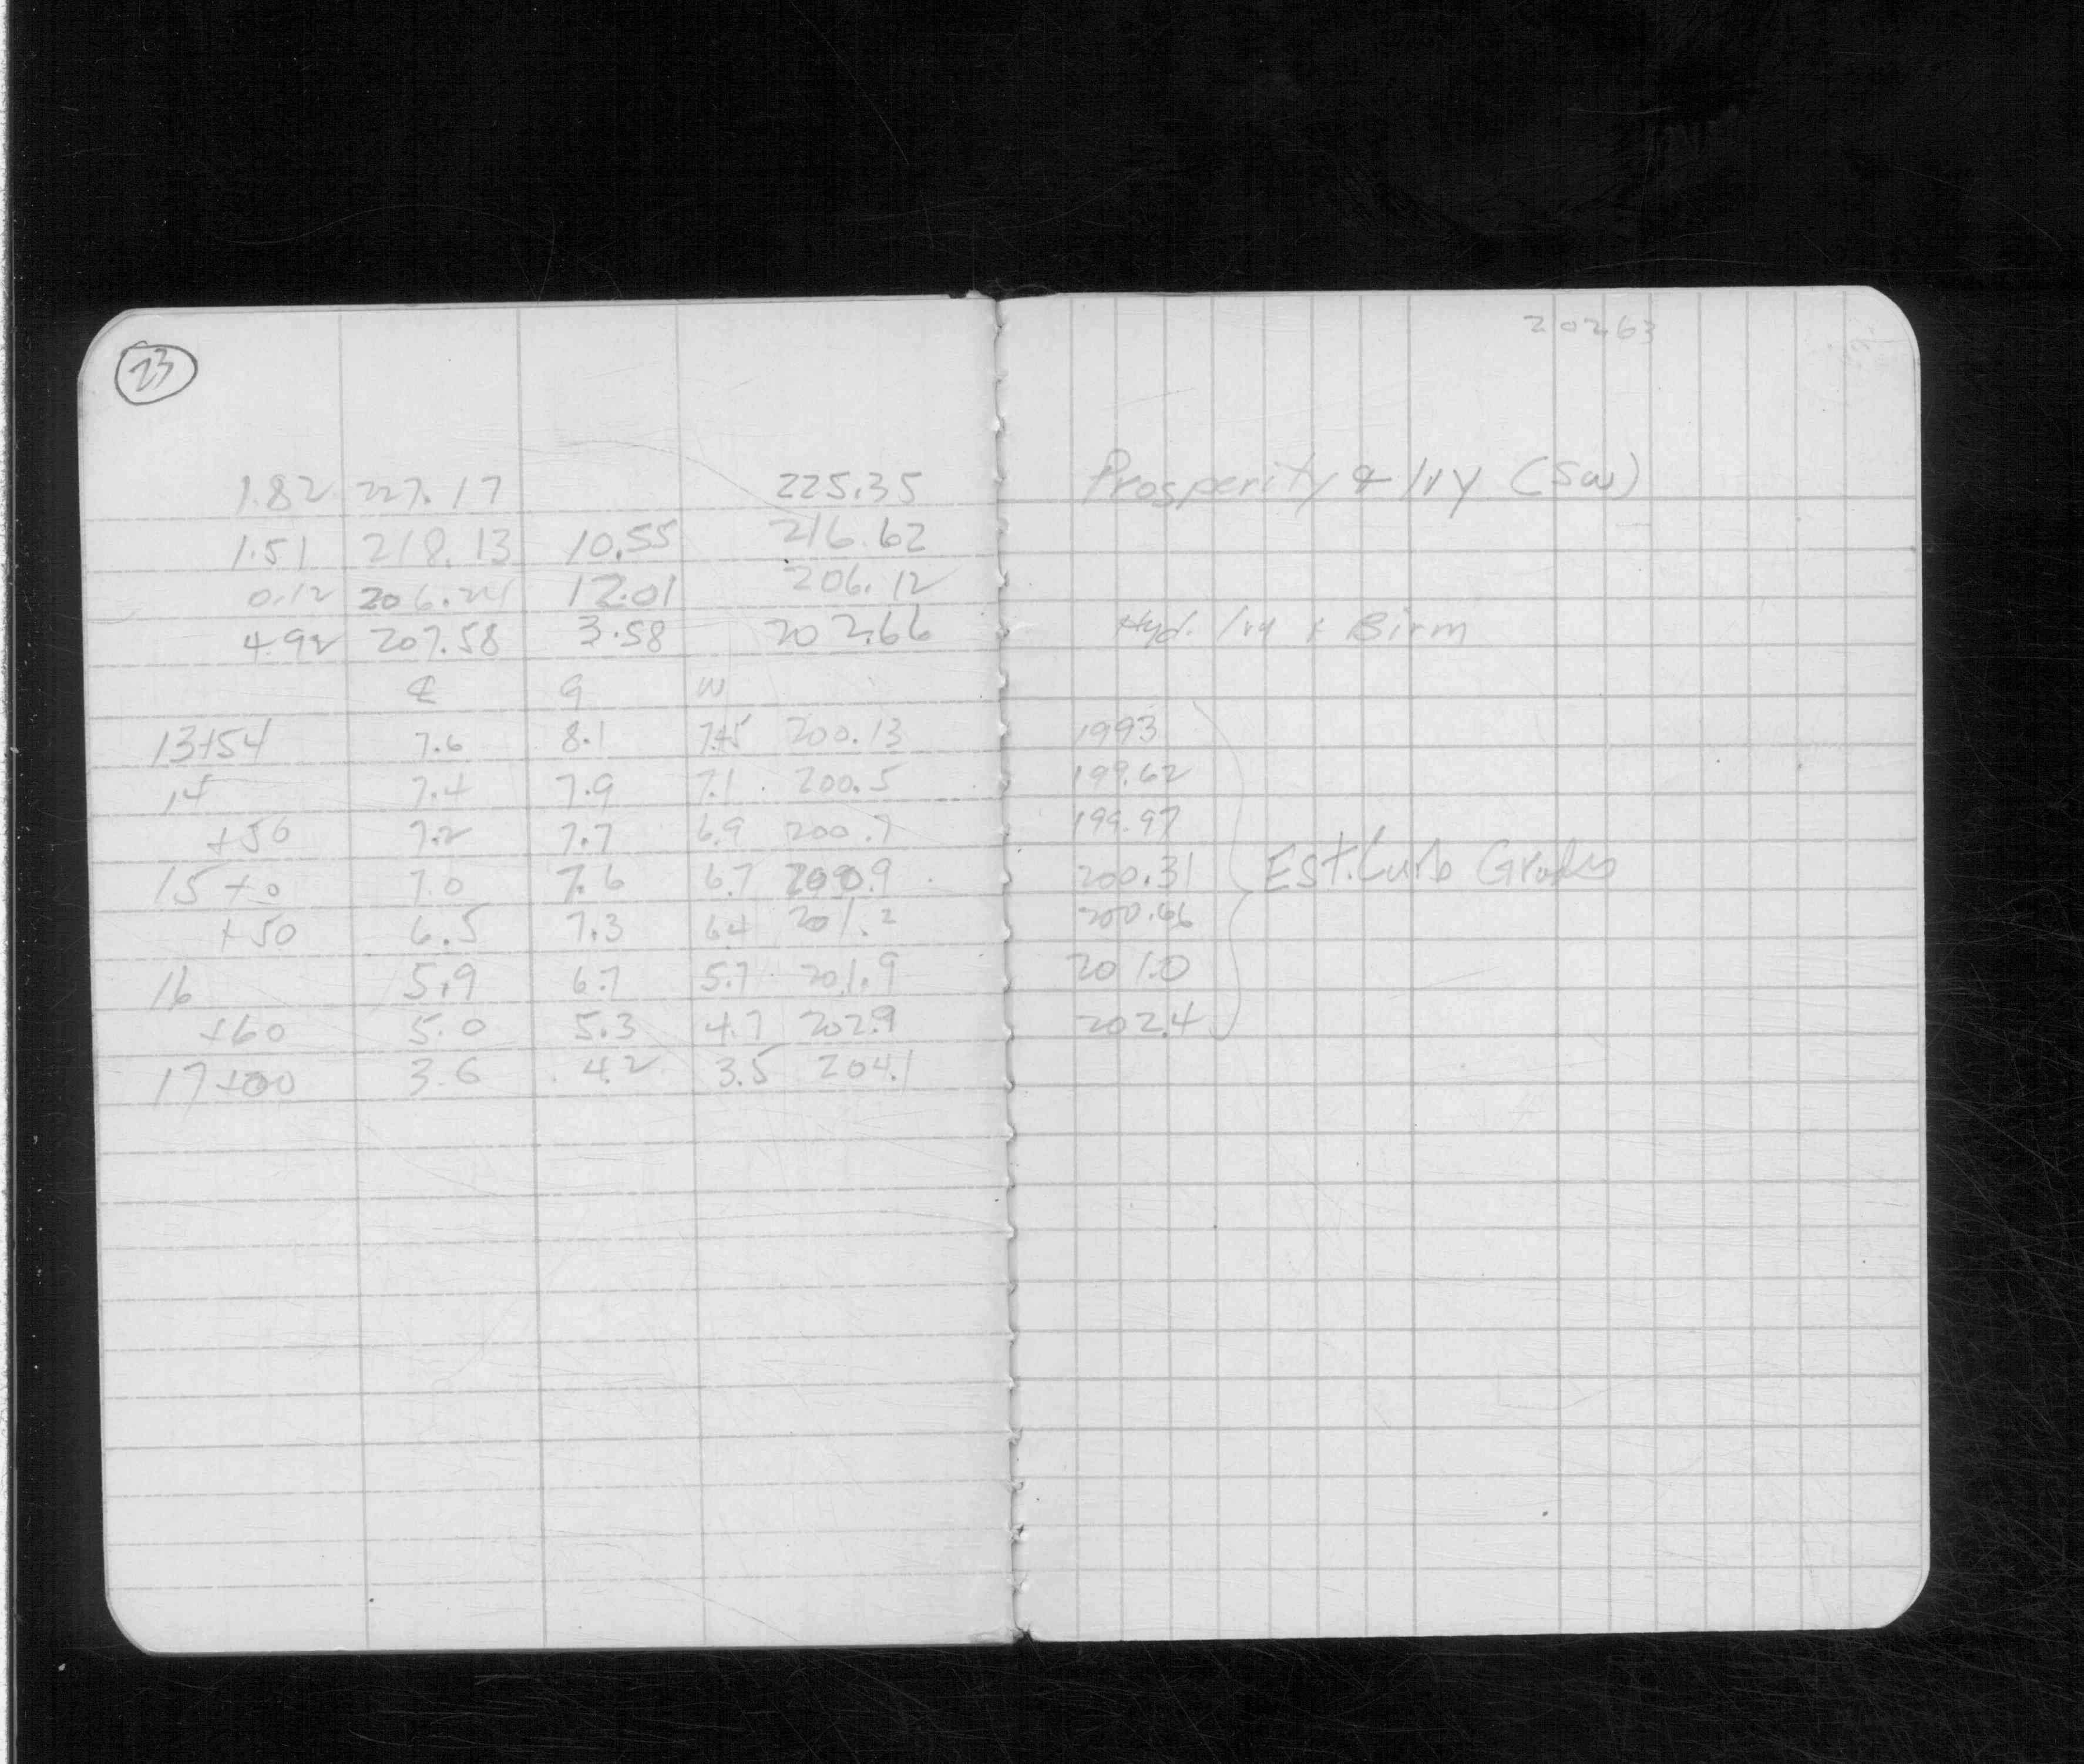 23
1.82 227.17 225.35
1.51 218.13 10.55 216.62
0.12 206.24 12.01 206.12
4.92 207.58 3.58 202.66
₵ G W
13+54 7.6 8.1 7.45 200.13
14 7.4 7.9 7.1 200.5
+50 7.2 7.7 6.9 200.7
15+0 7.0 7.6 6.7 200.9
+50 6.5 7.3 6.4 201.2
16 5.9 6.7 5.7 201.9
+60 5.0 5.3 4.7 202.9
17+00 3.6 4.2 3.5 204.1
20263
Prosperity & Ivy (SW)
Hyd. Ivy & Birm
1993
199.62
199.97
200.31 Est. Curb Grades
200.66
201.0
202.4